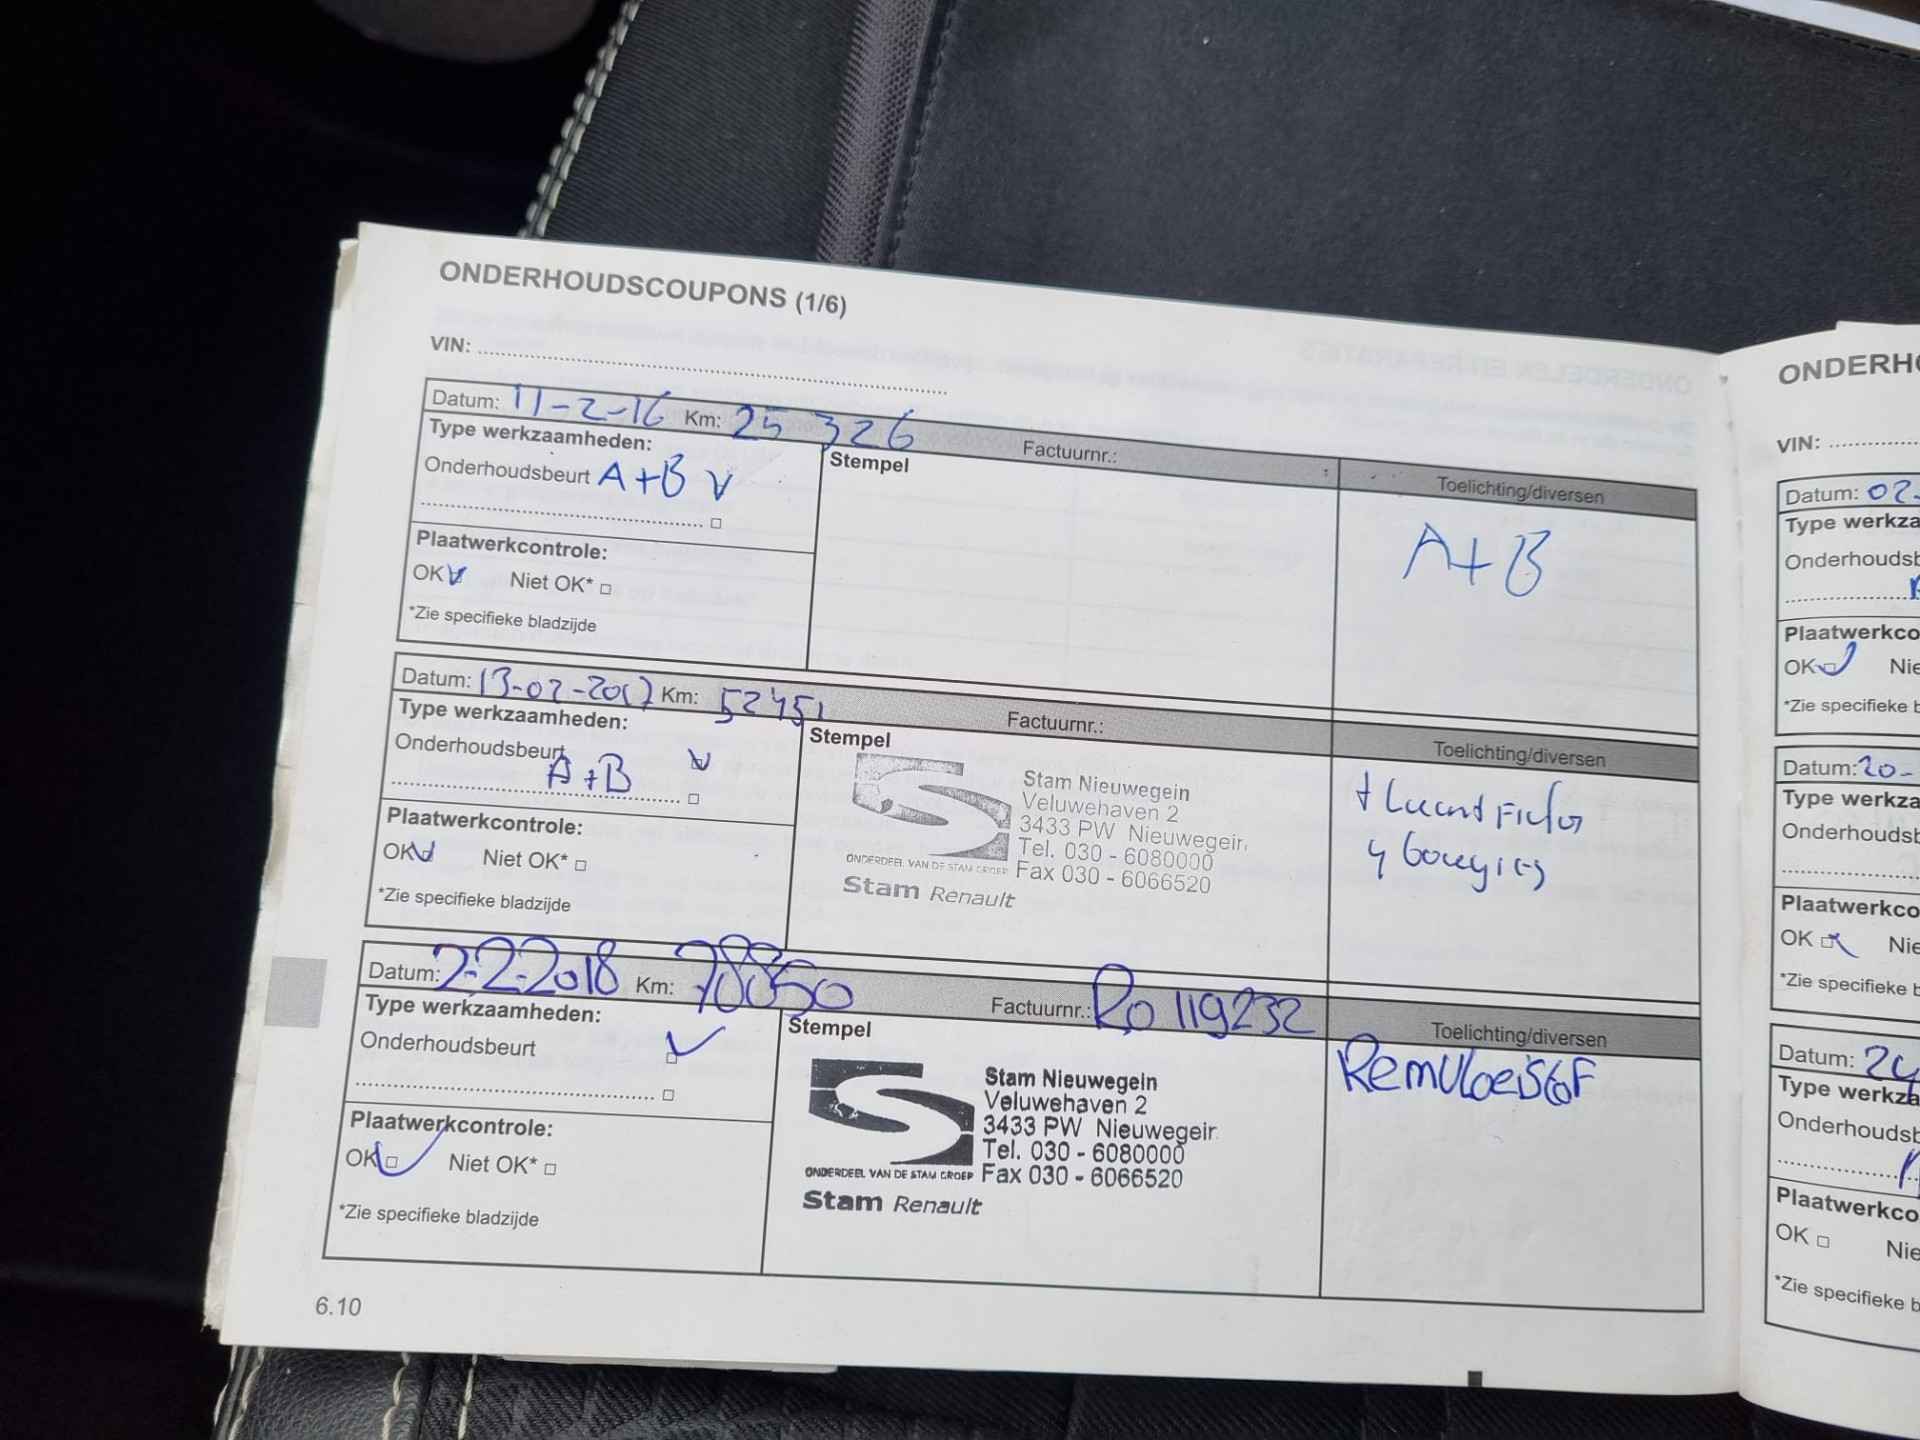 ONDERHOUDSCOUPONS (1/6)
VIN:
Datum: 11-2-16 Km: 25 326
Factuurnr.:
Type werkzaamheden:
Onderhoudsbeurt A+B
Stempel
Toelichting/diversen
A+B
Plaatwerkcontrole:
OK Niet OK*
*Zie specifieke bladzijde
Datum: 13-02-2017 Km: 52451
Factuurnr.:
Type werkzaamheden:
Onderhoudsbeurt
A+B
Stempel
Stam Nieuwegein
Veluwehaven 2
3433 PW Nieuwegein
Tel. 030 - 6080000
ONDERDEEL VAN DE STAM GROEP Fax 030 - 6066520
Stam Renault
Toelichting/diversen
+ Lucht Filter
4 bougies
Plaatwerkcontrole:
OK Niet OK*
*Zie specifieke bladzijde
Datum: 2-2-2018 Km: 78850
Factuurnr.: Ro 119232
Type werkzaamheden:
Onderhoudsbeurt
Stempel
Stam Nieuwegein
Veluwehaven 2
3433 PW Nieuwegein
Tel. 030 - 6080000
ONDERDEEL VAN DE STAM GROEP Fax 030 - 6066520
Stam Renault
Toelichting/diversen
RemVloeistoF
Plaatwerkcontrole:
OK Niet OK*
*Zie specifieke bladzijde
6.10
ONDERHO
VIN:
Datum: 02-
Type werkza
Onderhoudsb
Plaatwerkco
OK Nie
*Zie specifieke b
Datum: 20-
Type werkza
Onderhoudsb
Plaatwerkco
OK Nie
*Zie specifieke b
Datum: 24
Type werkza
Onderhoudsb
Plaatwerkco
OK Nie
*Zie specifieke b